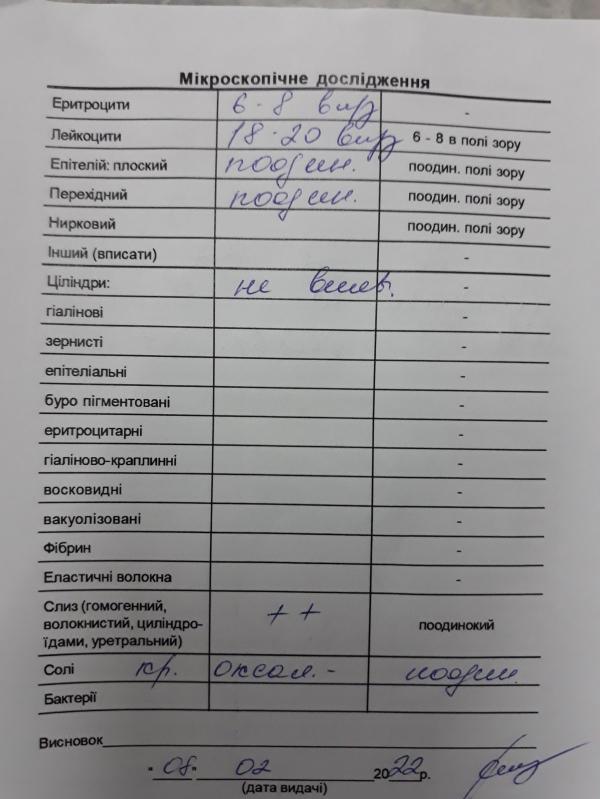 Мікроскопічне дослідження
Еритроцити 6-8 в п/з -
Лейкоцити 18-20 в п/з 6 - 8 в полі зору
Епітелій: плоский поодин. поодин. полі зору
Перехідний поодин. поодин. полі зору
Нирковий поодин. полі зору
Інший (вписати) -
Циліндри: не вияв. -
гіалінові -
зернисті -
епітеліальні -
буро пігментовані -
еритроцитарні -
гіаліново-краплинні -
восковидні -
вакуолізовані -
Фібрин -
Еластичні волокна -
Слиз (гомогенний,
волокнистий, циліндро- ++ поодинокий
їдами, уретральний)
Солі кр. оксал. - поодин.
Бактерії
Висновок
"08" 02 2022р.
(дата видачі)